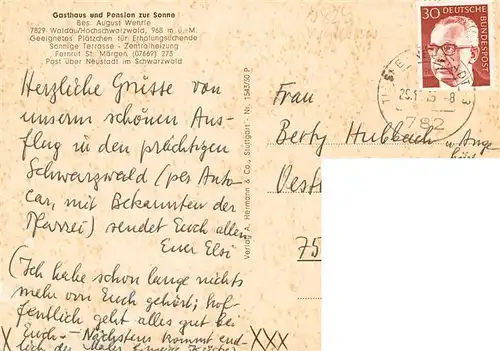 Gasthaus und Pension zur Sonne
Bes. August Wehrle
7829 Waldau/Hochschwarzwald, 968 m ü. M.
Geeignetes Plätzchen für Erholungsuchende
Sonnige Terrasse - Zentralheizung
Fernruf St. Märgen (07669) 273
Post über Neustadt im Schwarzwald
Herzliche Grüsse von
unserm schönen Aus-
flug in den prächtigen
Schwarzwald (per Auto-
car, mit Bekannten der
Pfarrei) sendet Euch allen
Euer Elsi
(Ich habe schon lange nichts
mehr von Euch gehört; hof-
fentlich geht alles gut bei
Euch. – Nächstens kommt end-
lich der
XXX
Verlag A. Hermann & Co., Stuttgart - Nr. 1543/50 P
30 DEUTSCHE
BUNDESPOST
-8
782
Frau
Berty Hubbach u. Ange
75